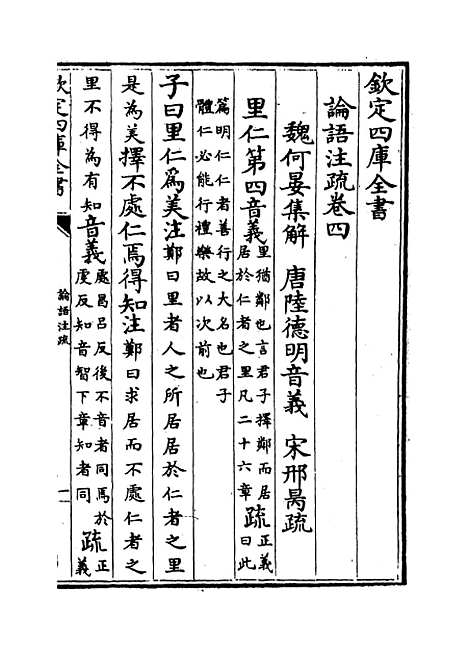 欽定四庫全書
論語注疏卷四
魏何晏集解　唐陸德明音義　宋邢昺疏
里仁第四音義里猶鄰也言君子擇鄰而居居於仁者之里凡二十六章疏正義曰此
篇明仁仁者善行之大名也君子體仁必能行禮樂故以次前也
子曰里仁爲美注鄭曰里者人之所居居於仁者之里
是為美擇不處仁焉得知注鄭曰求居而不處仁者之
里不得為有知音義處昌呂反後不音者同焉於虔反知音智下章知者同疏正義
欽定四庫全書
論語注疏
一